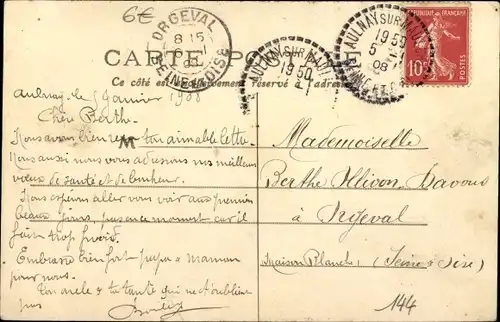 6€
ORGEVAL
8 15
SEINE-ET-OISE
AULNAY-SUR-MAULDRE
19 50
AULNAY-SUR-MAULDRE
19 50
5 -1
08
SEINE-ET-OISE
10c
POSTES
CARTE POSTALE
Ce côté est exclusivement réservé à l'adresse
Aulnay, le 5 Janvier 1908
Chère Berthe
Nous avons bien reçu ton aimable lettre
Nous aussi nous vous adressons nos meilleurs
vœux de santé et de bonheur.
Nous espérons aller vous voir aux premiers
beaux jours, pas en ce moment car il
fait trop froid.
Embrasse bien fort papa & maman
pour nous.
Ton oncle & ta tante qui ne t'oublient
pas
Mademoiselle
Berthe Ollivon-Davoust
à Orgeval
Maison Blanche (Seine & Oise)
144